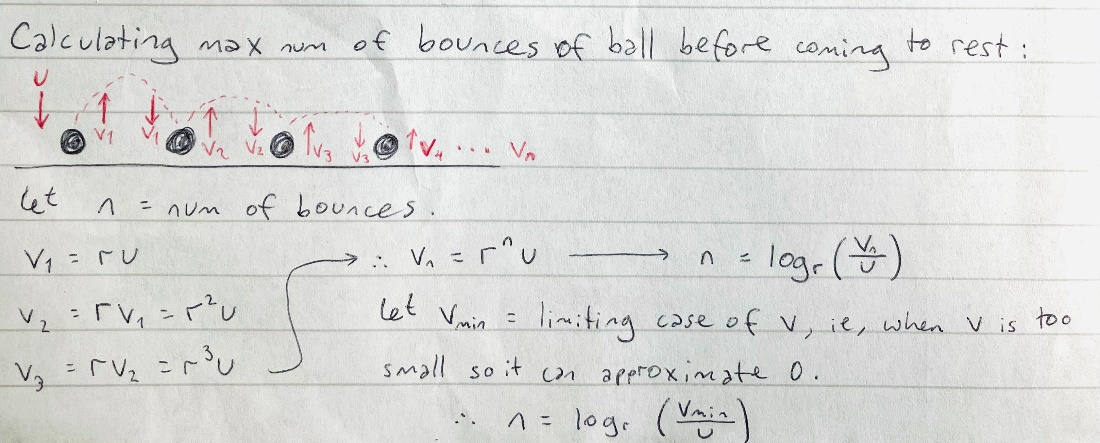 Calculating max num of bounces of ball before coming to rest :
U
V₁ V₁ V₂ V₂ V₃ V₃ V₄ ... Vₙ
Let n = num of bounces.
V₁ = rU
∴ Vₙ = rⁿU ⟶ n = logᵣ(Vₙ/U)
V₂ = rV₁ = r²U
V₃ = rV₂ = r³U
Let Vmin = limiting case of V, ie, when V is too
small so it can approximate 0.
∴ n = logᵣ (Vmin/U)